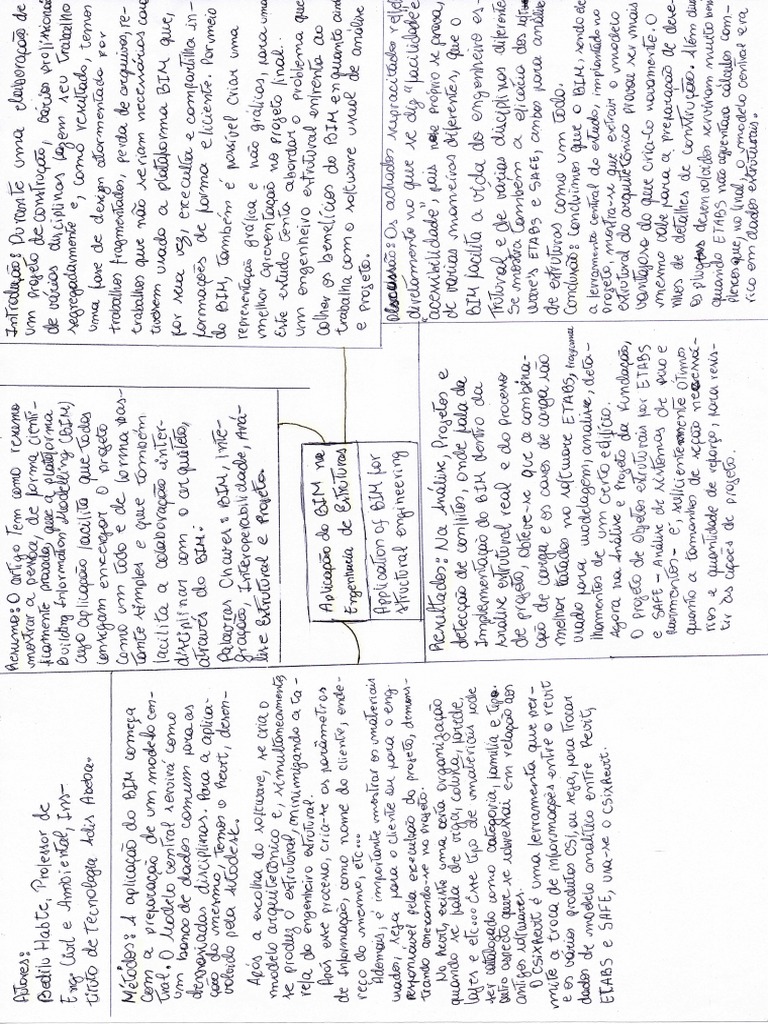 Autores:
Bedilu Habte, Professor de
Engª Civil e Ambiental, Ins-
tituto de Tecnologia Adis Abeba.
Métodos: A aplicação do BIM começa
com a preparação de um modelo cen-
tral. O Modelo central servirá como
um banco de dados comum para as
demasiadas disciplinas. Para a aplica-
ção do mesmo, temos o Revit, desen-
volvido pela Autodesk.
Após a escolha do software, se cria o
modelo arquitetônico e, simultaneamente,
se produz o estrutural, minimizando a ta-
refa do engenheiro estrutural.
Após esse processo, cria-se os parâmetros
de Informação, como nome do cliente, ende-
reço do mesmo, etc...
Ademais, é importante mostrar os materiais
usados, seja para o cliente ou para o eng.
responsável pela execução do projeto, demons-
trando anexando-se no projeto.
No Revit, existe uma certa organização
quando se fala de viga, coluna, parede,
lajes e etc... Este tipo de materiais pode
ser catalogado como categoria, família e tipo.
outro aspecto que se sobressai em relação aos
antigos softwares.
O CsixRevit é uma ferramenta que per-
mite a troca de informações entre o revit
e os vários produtos CSI, ou seja, para trocar
dados de modelo analítico entre Revit,
ETABS e SAFE, usa-se o CSixRevit.
Resumo: O artigo tem como resumo
mostrar a pessoa, de forma cienti-
ficamente provada, que a plataforma
Building Information Modelling (BIM),
cuja aplicação facilita que todos
consigam enxergar o projeto
como um todo e de forma bas-
tante simples e que também
facilita a colaboração inter-
disciplinar com o arquiteto,
através do BIM.
Palavras Chaves: BIM, Inte-
gração, Interoperabilidade, Aná-
lise Estrutural e Projeto.
Aplicação do BIM na
Engenharia de Estruturas
Application of BIM for
structural engineering
Resultados: Na Análise, Projetos e
detecção de conflitos, onde fala da
Implementação do BIM dentro da
Análise estrutural real e do processo
de projeto, obteve-se que a combina-
ção de carga e os casos de carga são
melhor tratados no software ETABS, programa
usado para modelagem, análise, deta-
lhamentos de um certo edifício.
Agora na Análise e Projeto da Fundação,
O Projeto de Objetos estruturais por ETABS
e SAFE - Análise de sistemas de piso e
pavimentos - é, suficientemente ótimos
quanto a tamanhos de seção necessá-
rios e quantidade de reforço, para resis-
tir às ações de projeto.
Introdução: Durante uma elaboração de
um projeto de construção, vários profissionais
de várias disciplinas fazem seu trabalho
segregadamente e, como resultado, temos
uma fase de design atormentada por
trabalhos fragmentados, perda de arquivo, re-
trabalhos que não seriam necessários caso
tivessem usado a plataforma BIM que,
por sua vez, executa e compartilha in-
formações de forma eficiente. Por meio
do BIM, também é possível criar uma
representação gráfica e não gráficas, para uma
melhor apresentação no projeto final.
Este estudo tenta abordar o problema que
um engenheiro estrutural enfrenta ao
colher os benefícios do BIM enquanto ainda
trabalha com o software usual de análise
e projeto.
Discussão: Os achados supracitados reflete
diretamente no que se diz "facilidade" e
"acessibilidade", pois nele próprio se prova,
de várias maneiras diferentes, que o
BIM facilita a vida do engenheiro es-
trutural e de várias disciplinas diferentes.
Se mostra também a eficácia dos soft-
wares ETABS e SAFE, ambos para análise
de estruturas como um todo.
Conclusão: Concluímos que o BIM, sendo ele
a ferramenta central do estudo, implantado no
projeto, mostra-se que extrair o modelo
estrutural do arquitetônico provou ser mais
vantajoso do que cria-lo novamente. O
mesmo vale para a preparação de dese-
nhos de detalhes de construção. Além disso,
os plugins desenvolvidos serviram muito bem
quando ETABS não aguentava cálculos com-
plexos que, no final, o modelo central era
rico em dados estruturais.